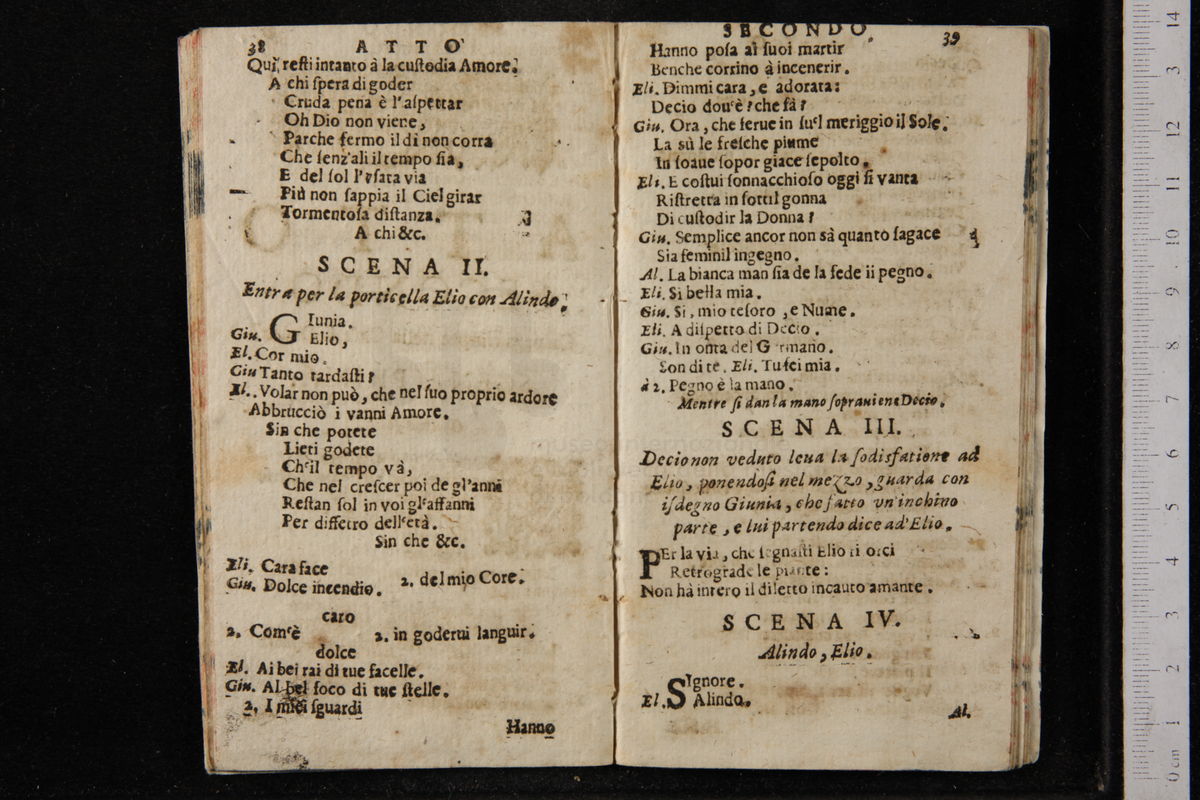 38 ATTO
Qui, resti intanto à la custodia Amore.
A chi spera di goder
Cruda pena è l'aspettar
Oh Dio non viene,
Parche fermo il di non corra
Che senz'ali il tempo sia,
E del sol l'vsata via
Più non sappia il Ciel girar
Tormentosa distanza.
A chi &c.
SCENA II.
Entra per la porticella Elio con Alindo.
Giu. GIunia.
Elio,
El. Cor mio.
Giu Tanto tardasti?
El.. Volar non può, che nel suo proprio ardore
Abbrucciò i vanni Amore.
Sin che potete
Lieti godete
Ch'il tempo và,
Che nel crescer poi de gl'anni
Restan sol in voi gl'affanni
Per diffetro dell'età.
Sin che &c.
Eli. Cara face
Giu. Dolce incendio. 2. del mio Core.
caro
2. Com'è 2. in goderui languir.
dolce
El. Ai bei rai di tue facelle.
Giu. Al bel foco di tue stelle.
2. I miei sguardi
Hanno
SECONDO. 39
Hanno posa ai suoi martir
Benche corrino à incenerir.
Eli. Dimmi cara, e adorata:
Decio dou'è? che fà?
Giu. Ora, che ferue in su'l meriggio il Sole.
La sù le fresche piume
In soaue sopor giace sepolto.
Eli. E costui sonnacchioso oggi si vanta
Ristretta in sottil gonna
Di custodir la Donna?
Giu. Semplice ancor non sà quanto sagace
Sia feminil ingegno.
Al. La bianca man sia de la fede il pegno.
Eli. Si bella mia.
Giu. Si, mio tesoro, e Nume.
Eli. A dispetto di Decio.
Giu. In onta del G rmano.
Son di te. Eli. Tu sei mia.
à 2. Pegno è la mano.
Mentre si dan la mano soprauiene Decio.
SCENA III.
Decio non veduto leua la sodisfatione ad
Elio, ponendosi nel mezzo, guarda con
isdegno Giunia, che fatto vn'inchino
parte, e lui partendo dice ad'Elio.
PEr la via, che segnasti Elio ti orci
Retrograde le piante:
Non hà intero il diletto incauto amante.
SCENA IV.
Alindo, Elio.
SIgnore.
El. Alindo.
Al.